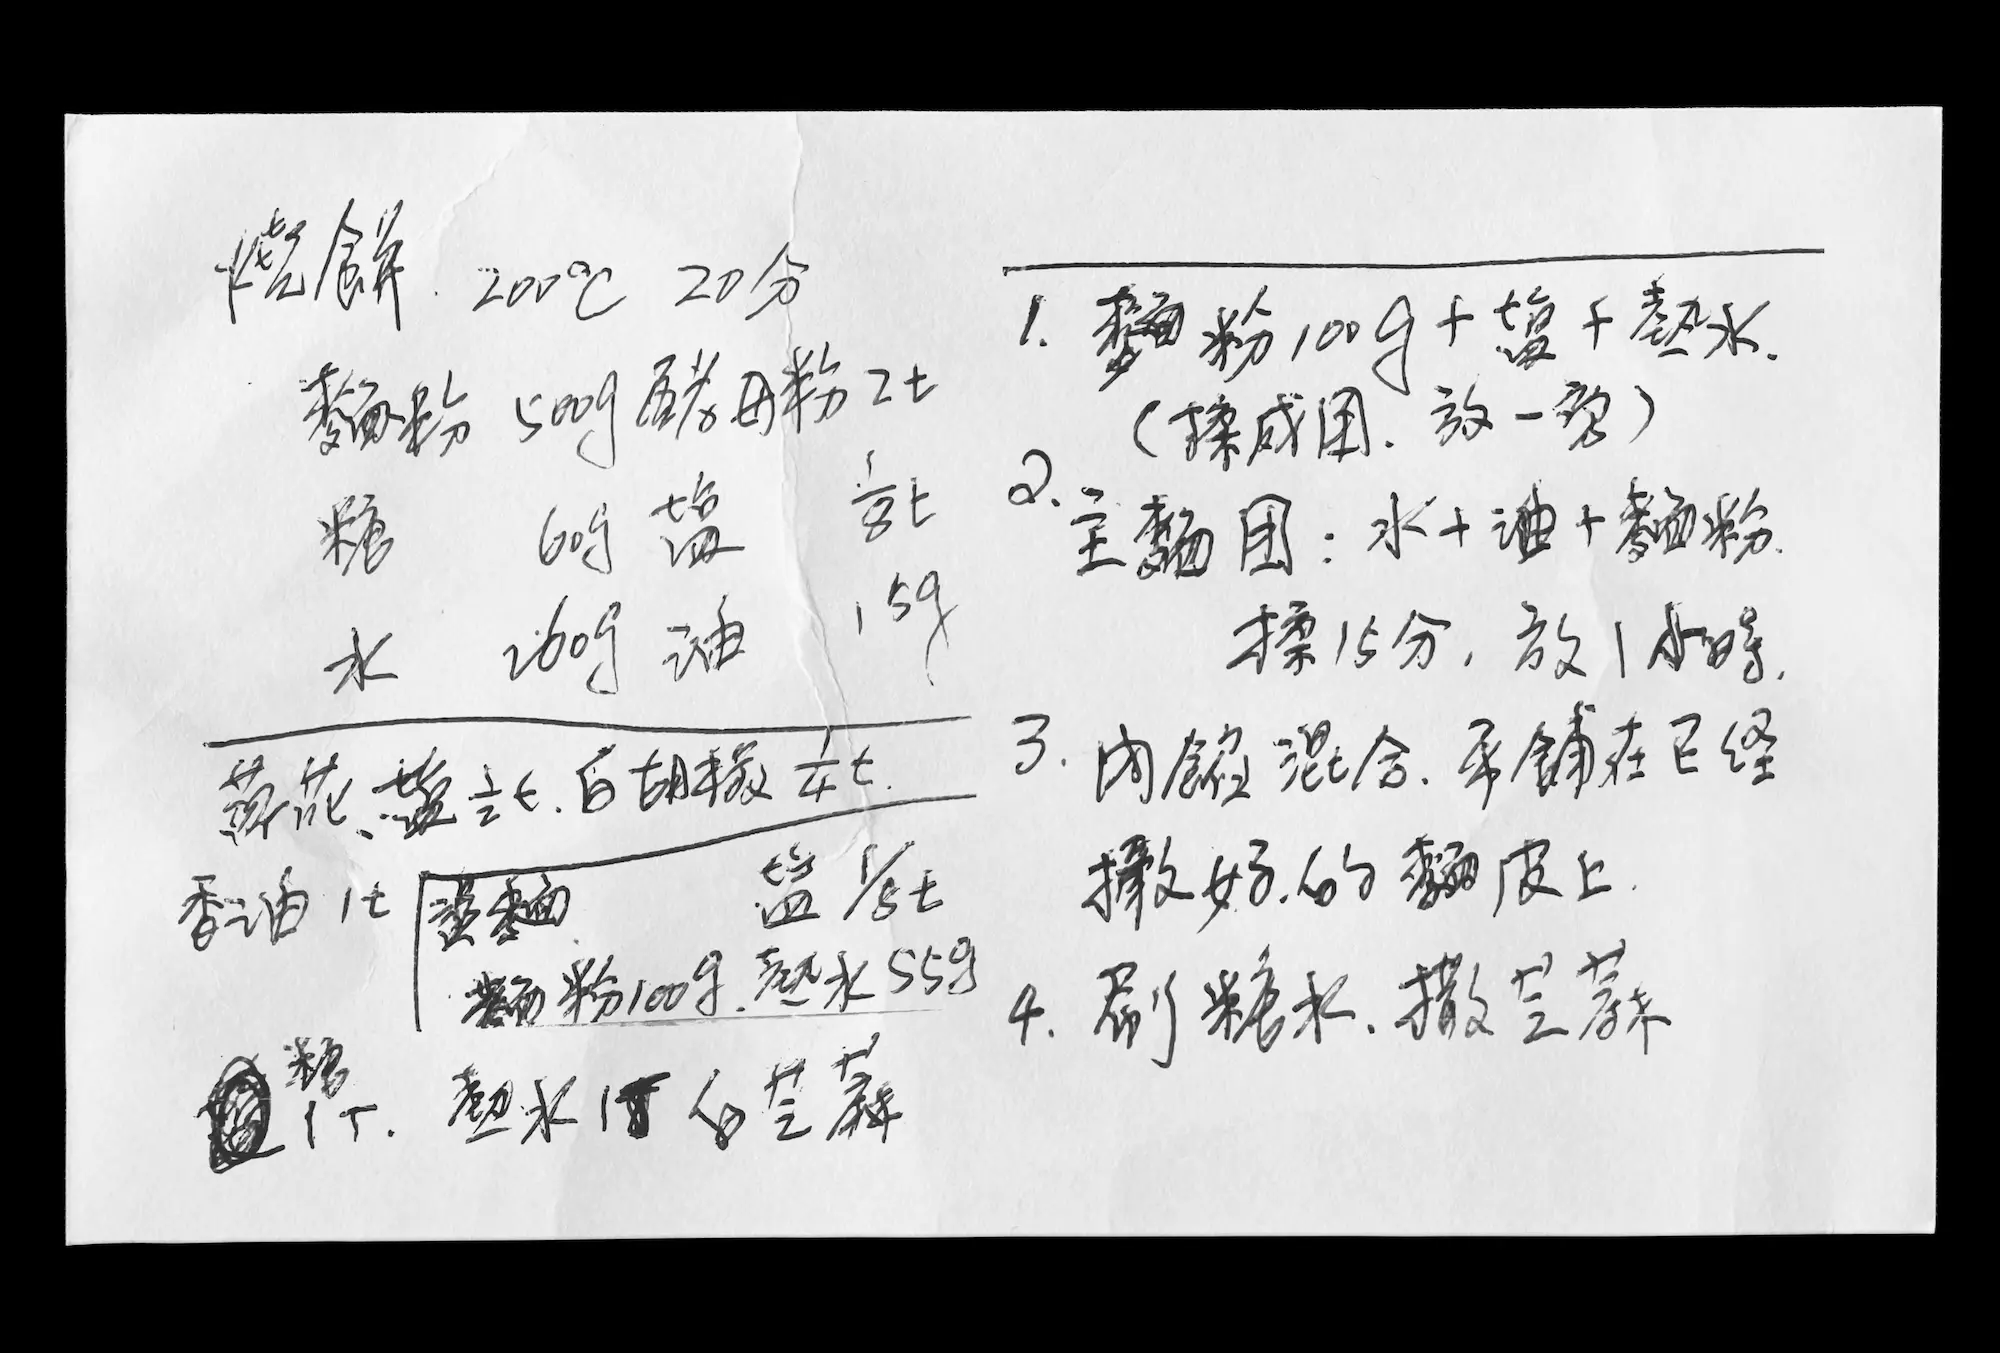 燒餅. 200℃ 20分
麵粉 500g 酵母粉 2t
糖 60g 塩 1/8t
水 260g 油 15g
葱花、塩 1/2t. 白胡椒 1/4t.
香油 1t
燙麵 塩 1/8t
麵粉100g. 熱水 55g
糖 1T. 熱水 1T 白芝蔴
1. 麵粉100g+塩+熱水.
(揉成团. 放一旁)
2. 主麵团:水+油+麵粉.
揉15分. 放1小時.
3. 内餡混合. 平舖在已经
擀好的麵皮上.
4. 刷糖水. 撒芝蔴